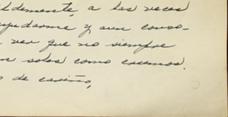 ldemente, a las veces
ayudarme y aun conso-
ver que no siempre
n solos como creemos.
s de cariño,